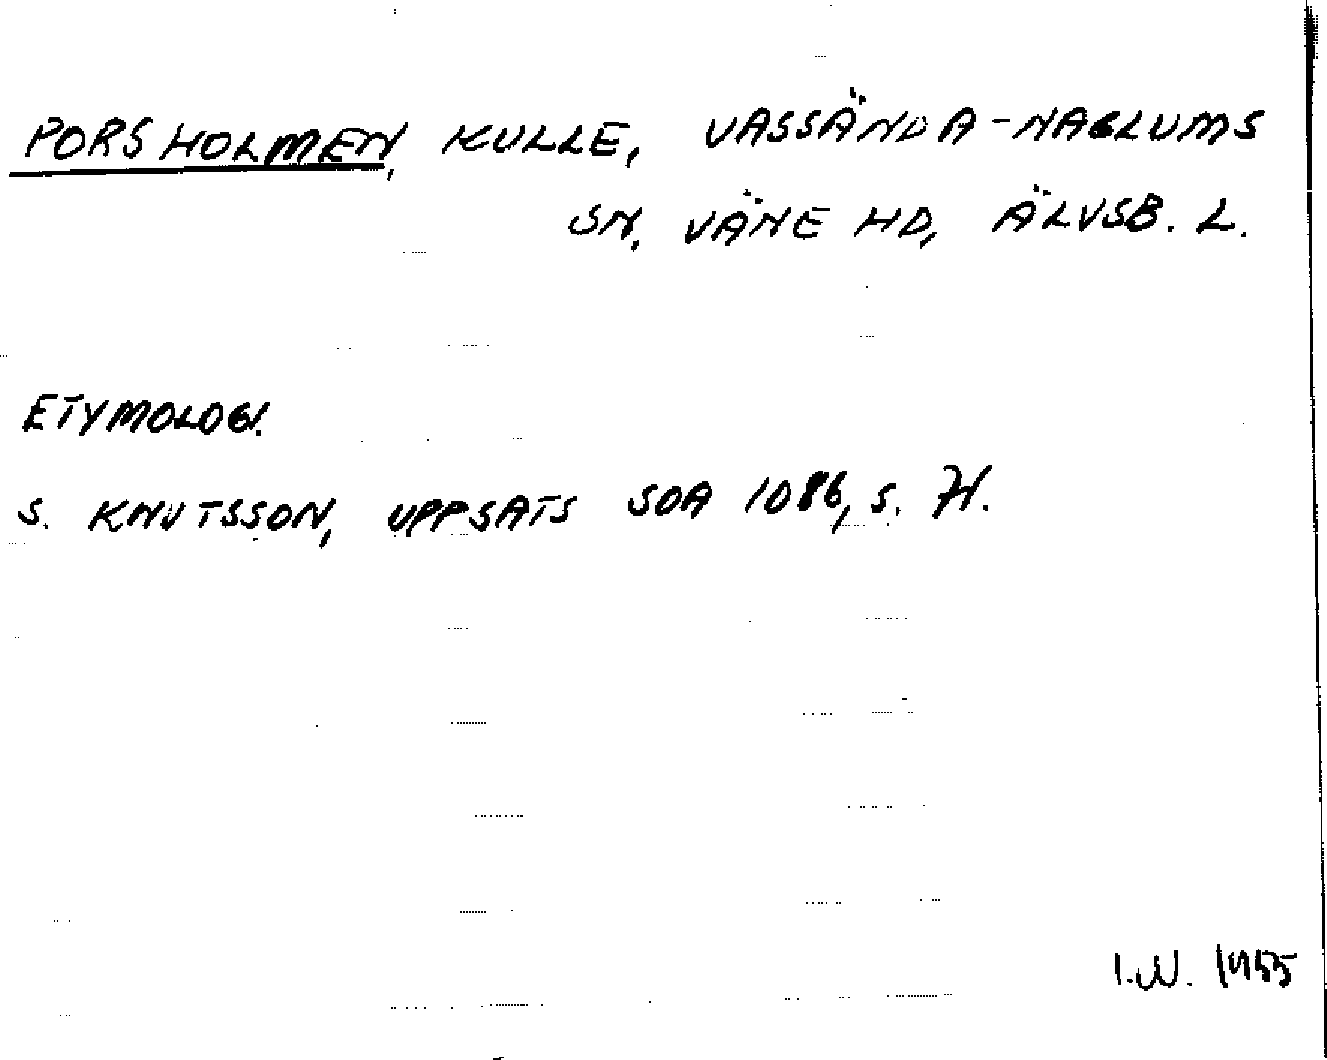 PORSHOLMEN, KULLE, VASSÄNDA-NAGLUMS
SN, VÄNE HD, ÄLVSB. L.
ETYMOLOGI.
S. KNUTSSON, UPPSATS SOA 1086, S. 71.
I.W. 1955